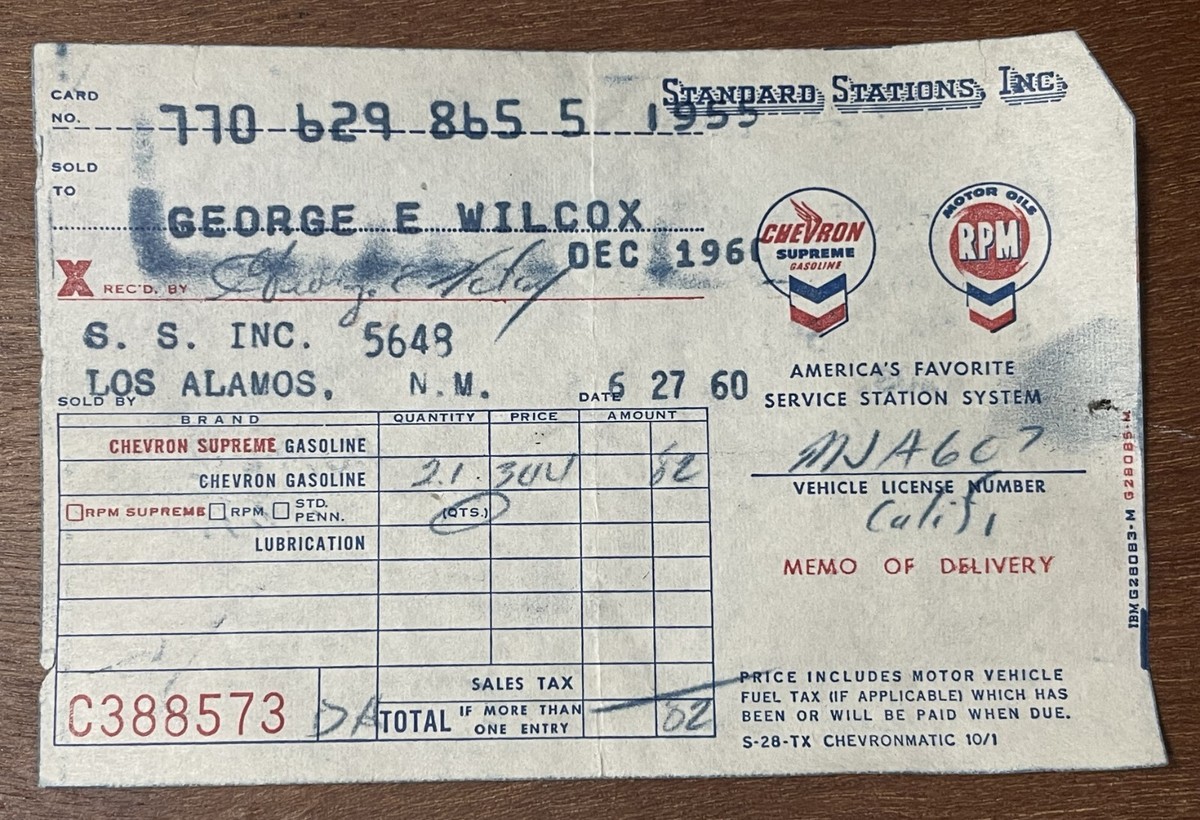 STANDARD STATIONS, INC.
CARD
NO.
770 629 865 5 1955
SOLD
TO
GEORGE E WILCOX
DEC 1960
X REC'D. BY George E Wilcox
CHEVRON
SUPREME
GASOLINE
MOTOR OILS
RPM
S. S. INC. 5648
LOS ALAMOS, N.M.
SOLD BY
DATE 6 27 60
AMERICA'S FAVORITE
SERVICE STATION SYSTEM
BRAND QUANTITY PRICE AMOUNT
CHEVRON SUPREME GASOLINE
CHEVRON GASOLINE 2.1 .344 82
RPM SUPREME RPM STD. PENN. (QTS.)
LUBRICATION
MJA607
VEHICLE LICENSE NUMBER
Calif,
MEMO OF DELIVERY
SALES TAX
C388573
TOTAL IF MORE THAN ONE ENTRY 82
PRICE INCLUDES MOTOR VEHICLE
FUEL TAX (IF APPLICABLE) WHICH HAS
BEEN OR WILL BE PAID WHEN DUE.
S-28-TX CHEVRONMATIC 10/1
IBM G28083-M G28085-M